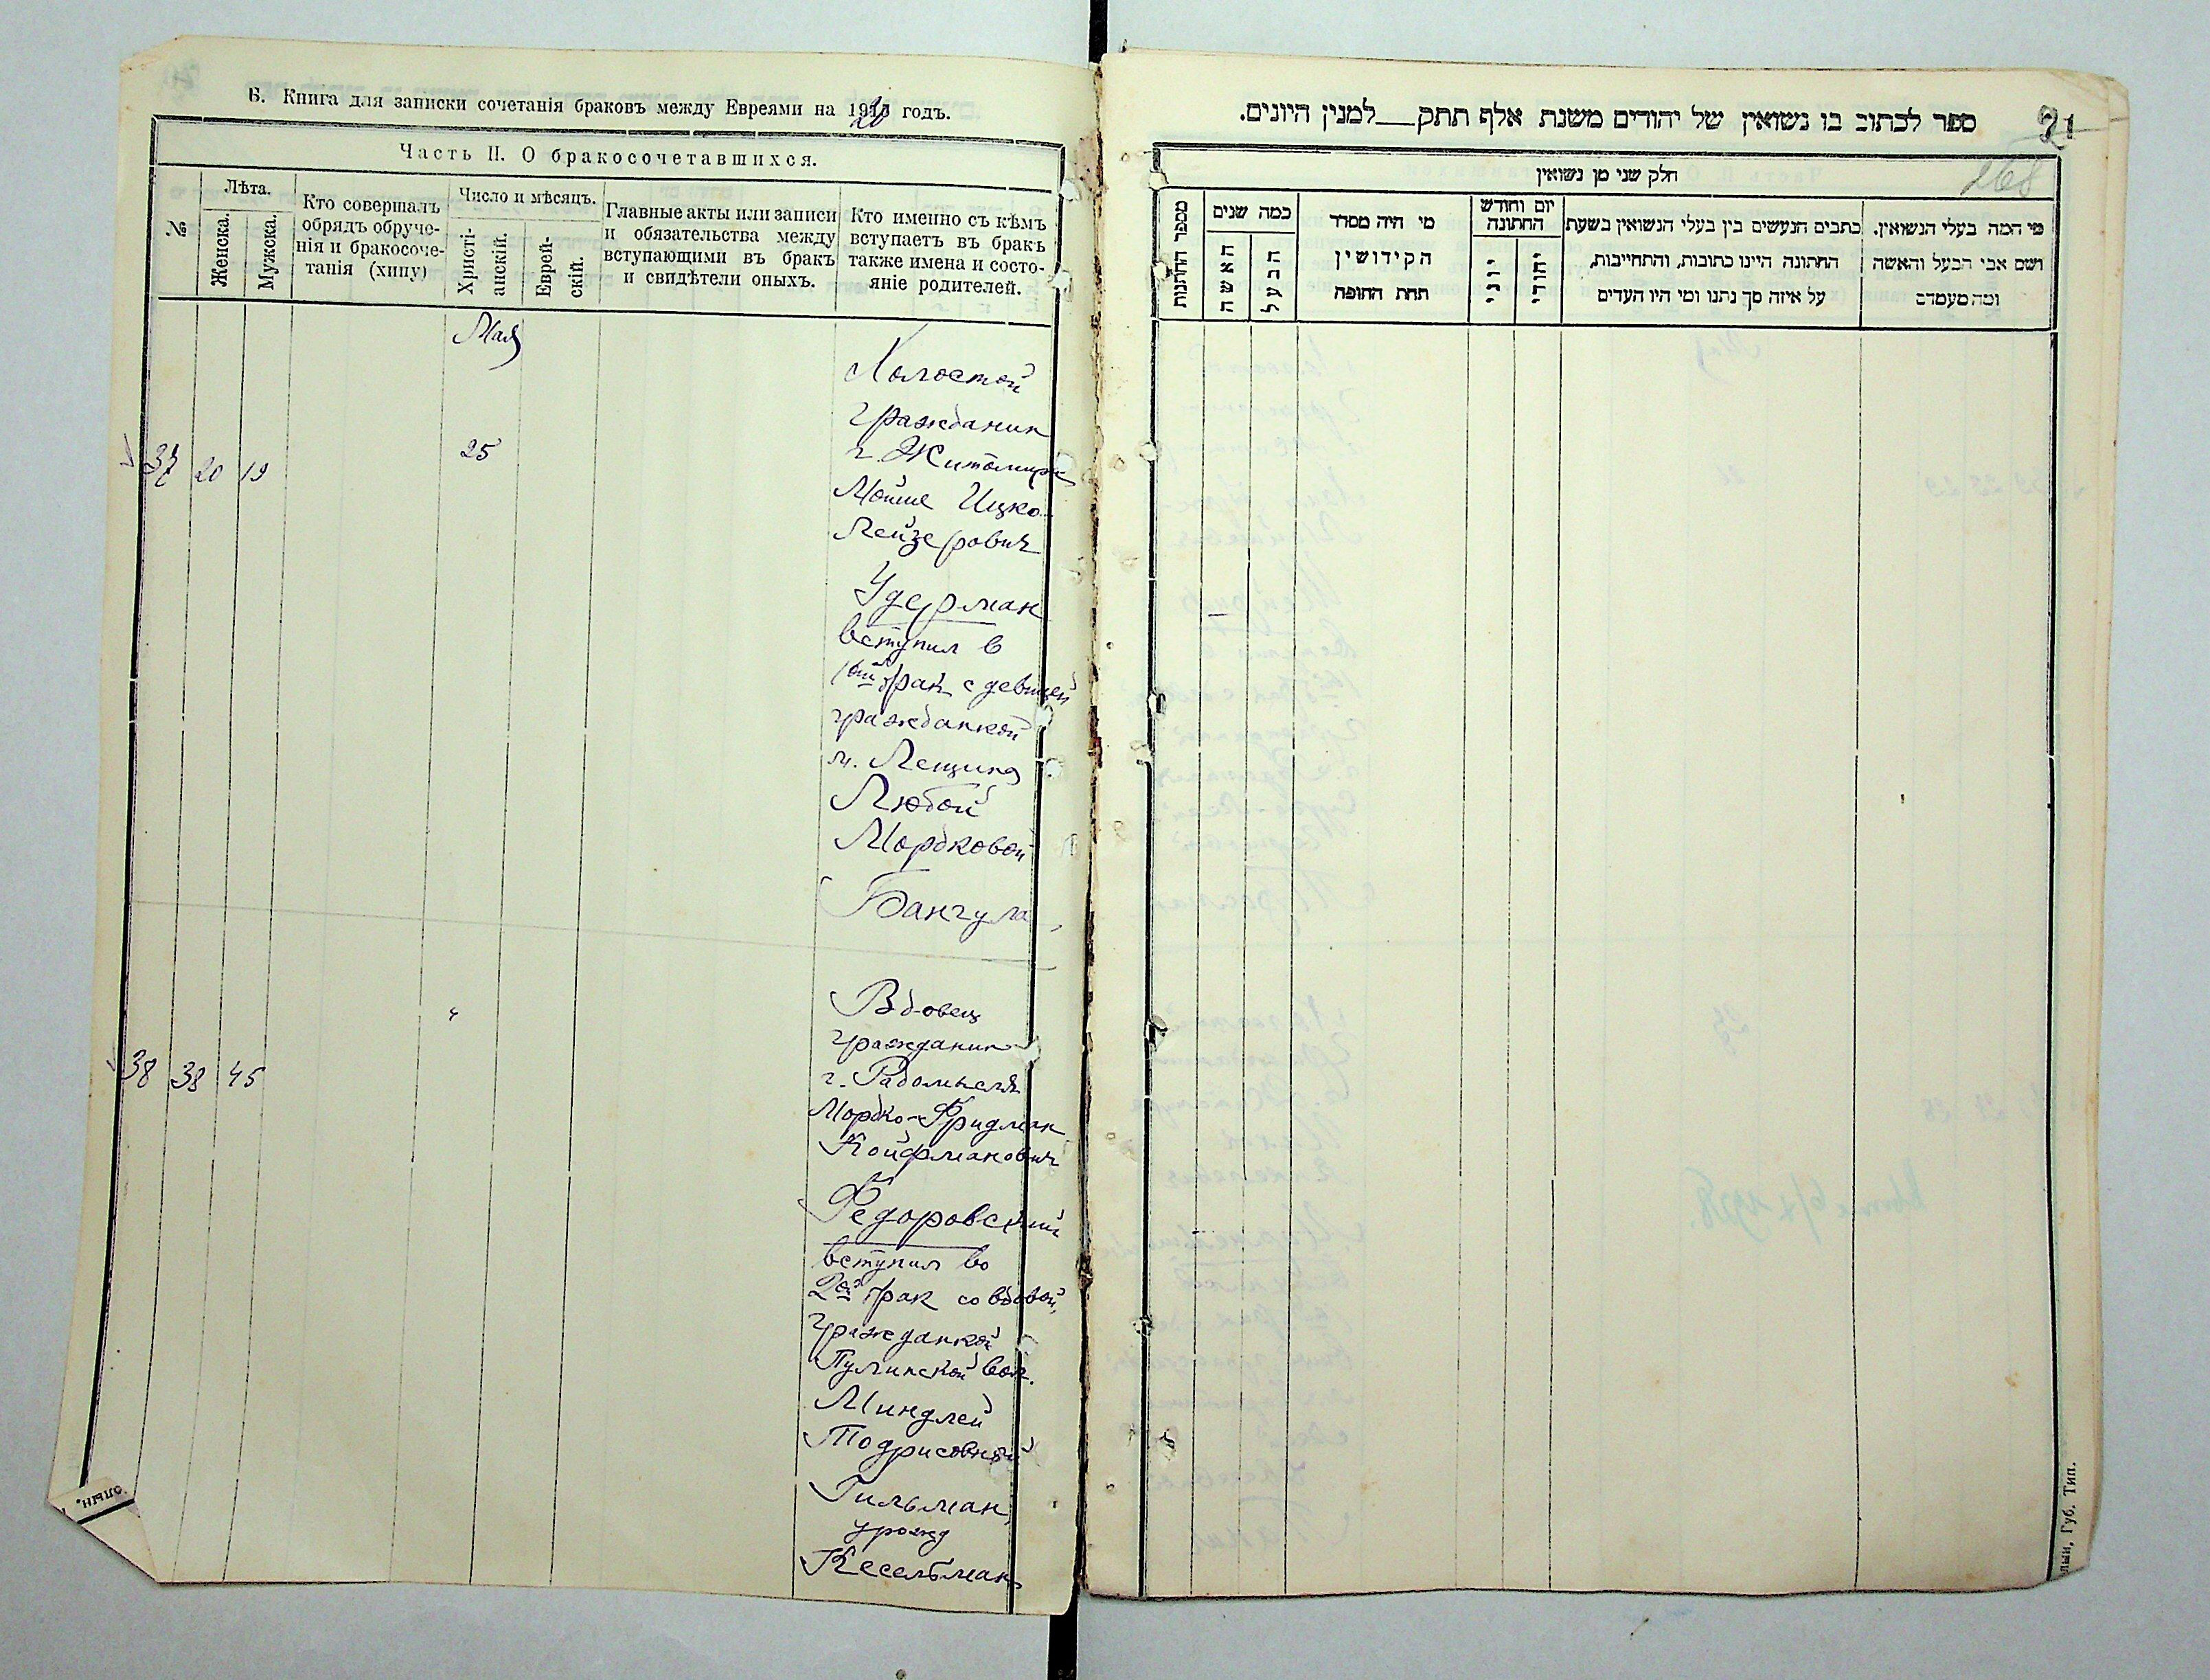 Б. Книга для записки сочетанія браковъ между Евреями на 1920 годъ.
Часть II. О бракосочетавшихся.
№
Лѣта.
Женска.
Мужска.
Кто совершалъ
обрядъ обруче-
нія и бракосоче-
танія (хипу)
Число и мѣсяцъ.
Христі-
анскій.
Еврей-
скій.
Главные акты или записи
и обязательства между
вступающими въ бракъ
и свидѣтели оныхъ.
Кто именно съ кѣмъ
вступаетъ въ бракъ
также имена и состо-
яніе родителей.
Мая
37 20 19
25
Холостой
гражданин
г. Житомира
Мойше Ицко
Лейзерович
Удерман
вступил в
1ый брак с девицей
гражданкой
м. Лещина
Любой
Мордковой
Бангула
38 38 45
"
Вдовец
гражданин
г. Радомысля
Мордко-Фридман
Койфманович
Федоровский
вступил во
2ой брак со вдовой,
гражданкой
Пулинской вол.
Миндлей
Тодрисовной
Гильман,
урожд
Кесельман
ספר לכתוב בו נשואין של יהודים משנת אלף תתק__למנין היונים.
21
268
חלק שני מן נשואין
מספר החתנות
כמה שנים
האשה
הבעל
מי היה מסדר
הקידושין
תחת החופה
יום וחודש
החתונה
יוני
יהודי
כתבים הנעשים בין בעלי הנשואין בשעת
החתונה היינו כתובות, והתחייבות,
על איזה סך נתנו ומי היו העדים
מי המה בעלי הנשואין.
ושם אבי הבעל והאשה
ומה מעמדם
Губ. Тип.